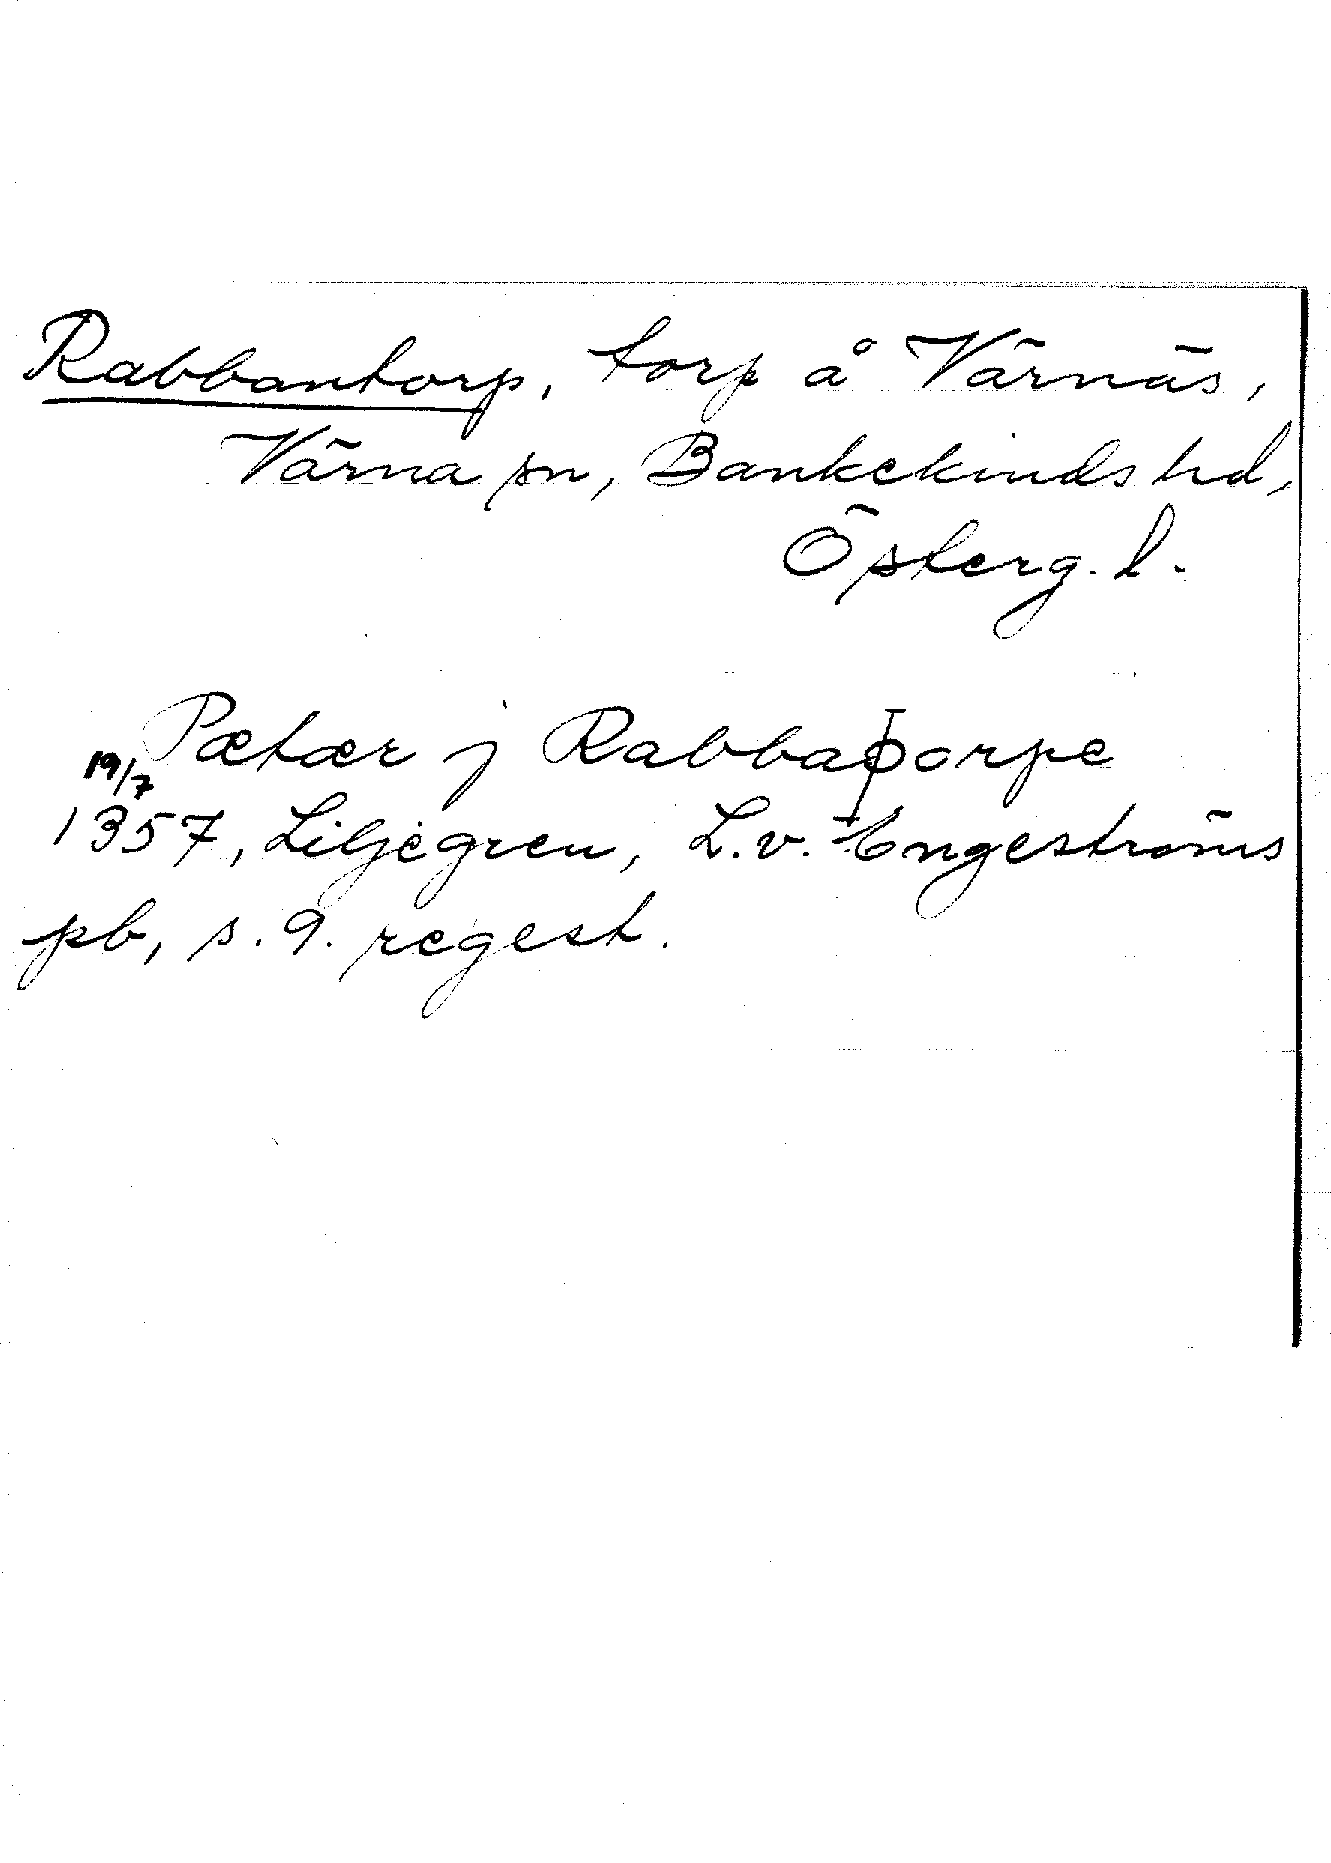 Rabbantorp, torp å Värnäs,
Värna sn, Bankekinds hd,
Österg. l.
Pætær j Rabbaþorpe
19/7
1357, Liljegren, L. v. Engeströms
pb, s. 9. regest.